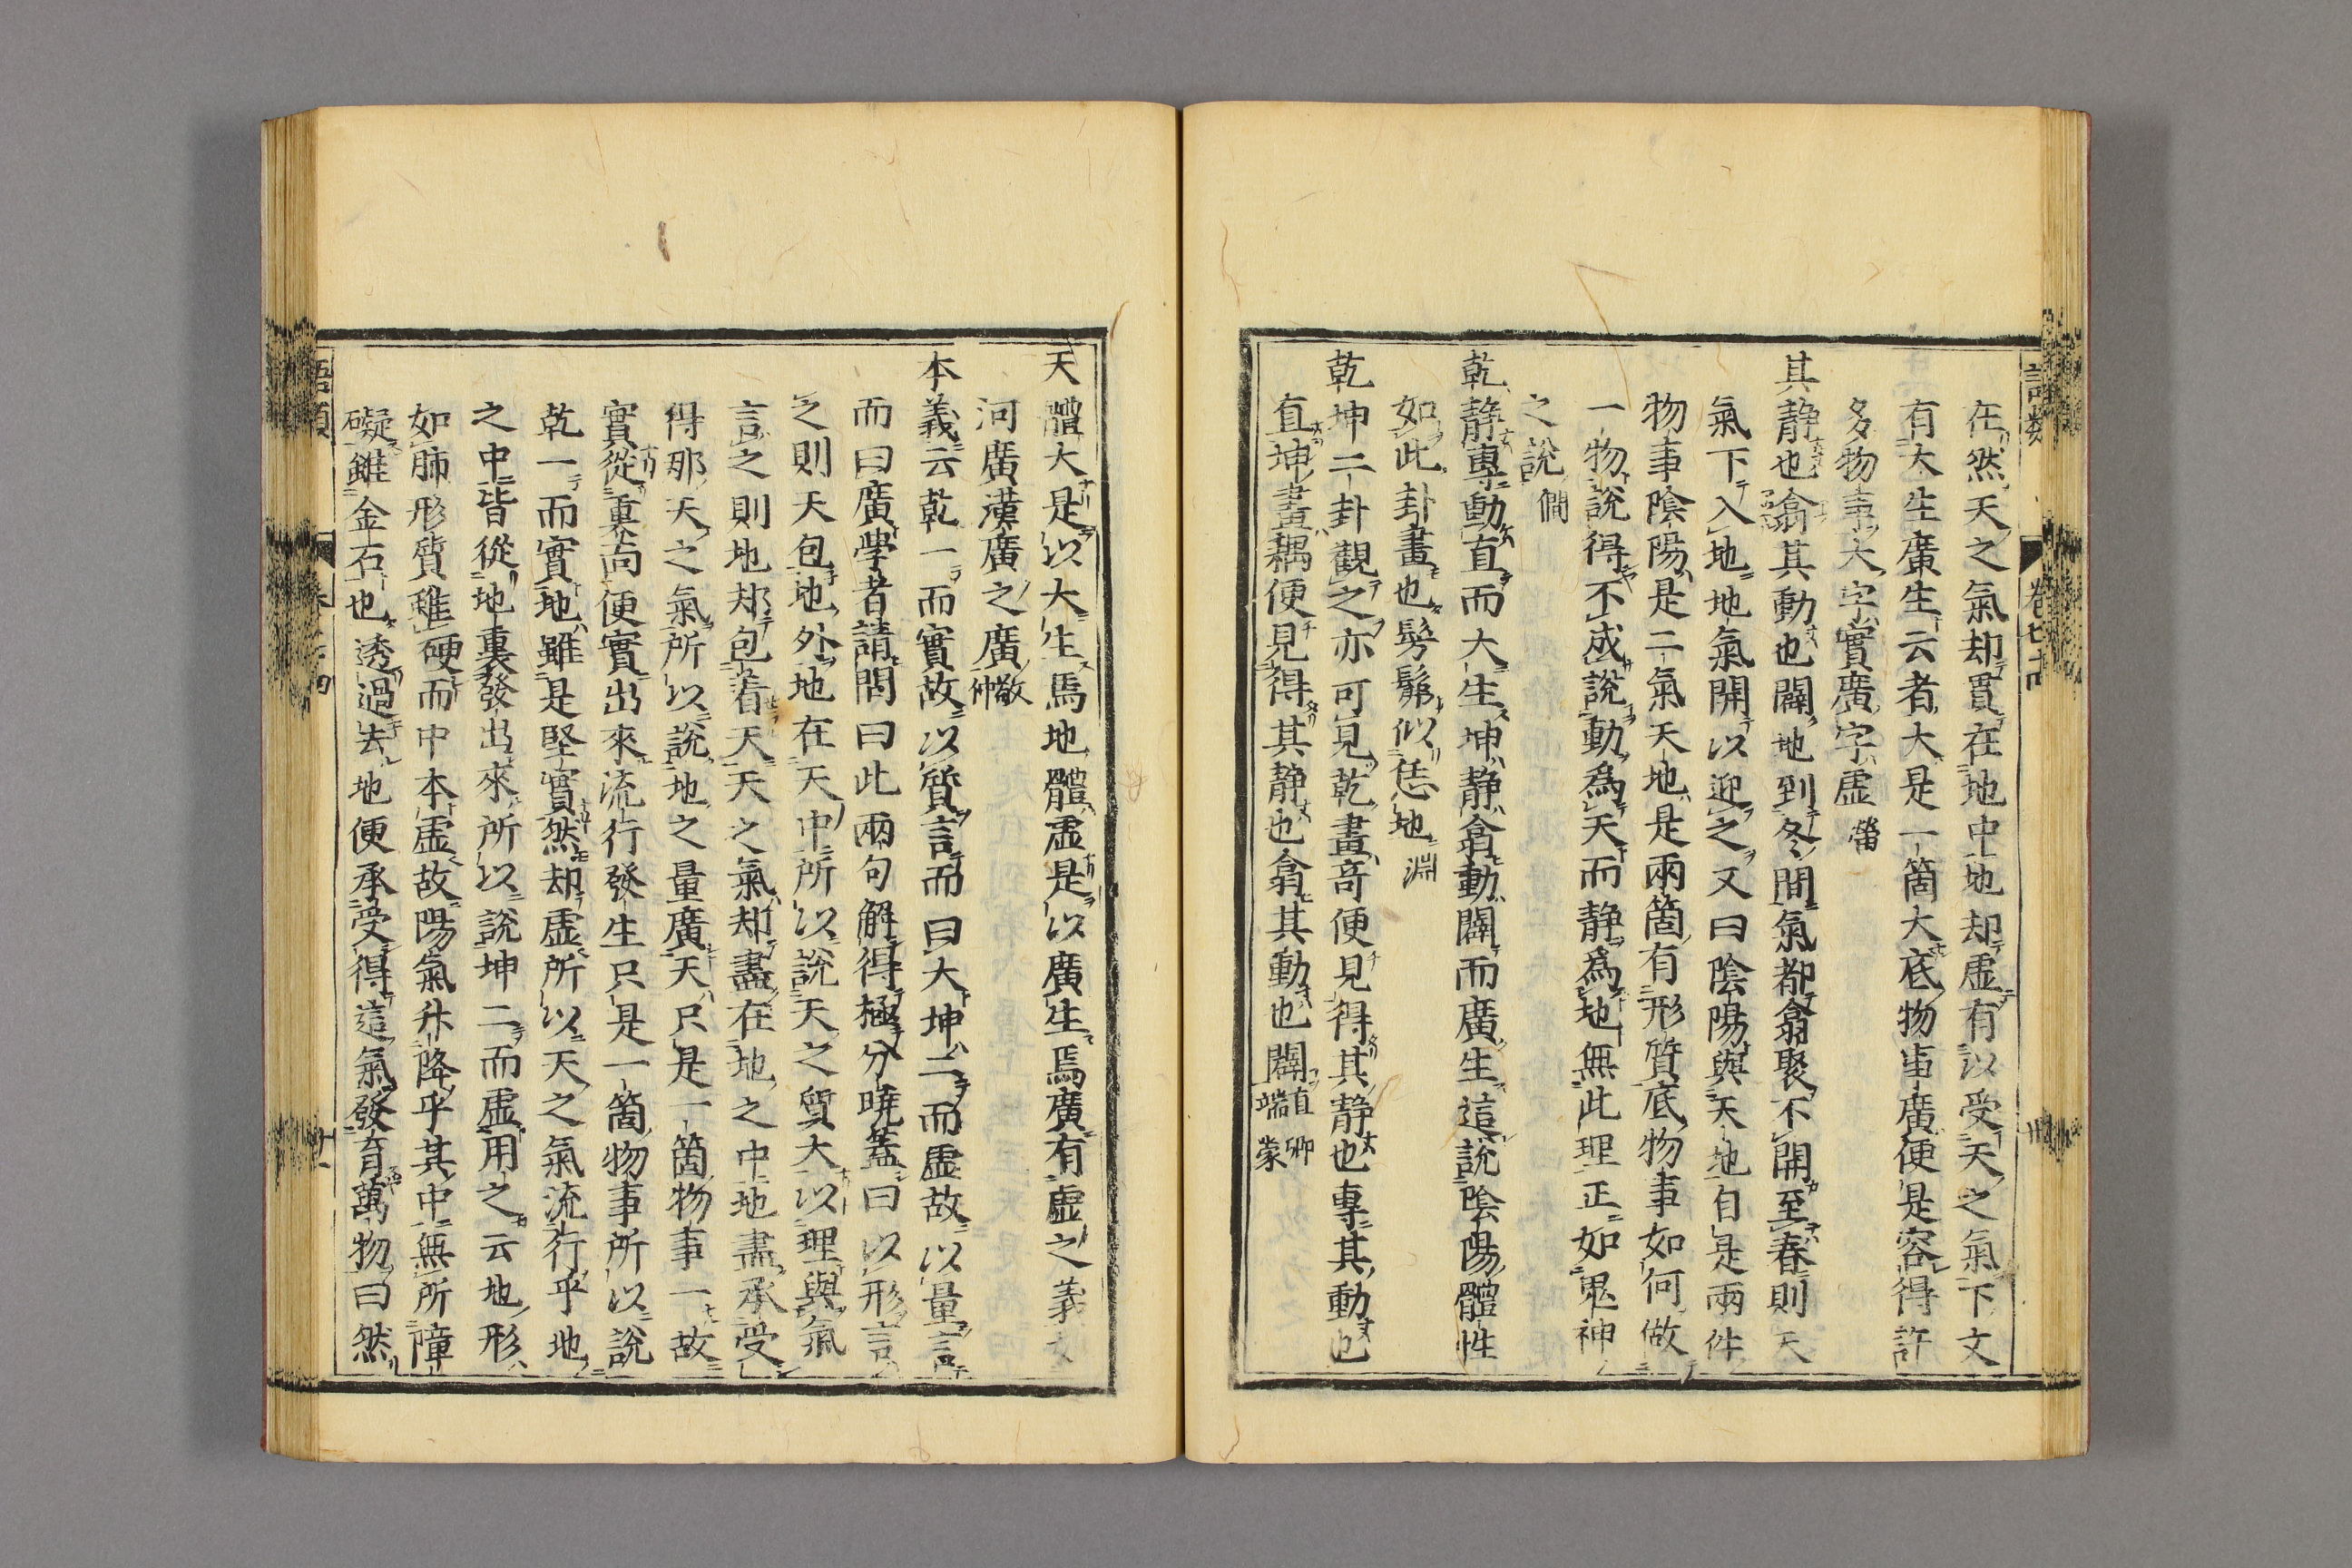 在然天之氣却貫在地中地却虛有以受天之氣下文
有大生廣生云者大是一箇大底物事廣便是容得許
多物事大字實廣字虛 㽦
其静也翕其動也闢地到冬間氣都翕聚不開至春則天
氣下入地地氣開以迎之又曰陰陽與天地自是兩件
物事陰陽是二氣天地是兩箇有形質底物事如何做
一物說得不成說動爲天而静爲地無此理正如鬼神
之說 僩
乾静專動直而大生坤静翕動闢而廣生這說陰陽體性
如此卦畫也髣髴似恁地 淵
乾坤二卦觀之亦可見乾畫竒便見得其静也專其動也
直坤畫耦便見得其静也翕其動也闢 直卿
端蒙
天體大是以大生焉地體虛是以廣生焉廣有虛之義
河廣漢廣之廣 敬仲
本義云乾一而實故以質言而曰大坤二而虛故以量言
而曰廣學者請問曰此兩句解得極分曉蓋曰以形言
之則天包地外地在天中所以說天之質大以理與氣
言之則地却包著天天之氣却盡在地之中地盡承受
得那天之氣所以說地之量廣天只是一箇物事一故
實從裏面便實出來流行發生只是一箇物事所以說
乾一而實地雖是堅實然却虛所以天之氣流行乎地
之中皆從地裏發出來所以說坤二而虛用之云地形
如肺形質雖硬而中本虛故陽氣升降乎其中無所障
礙雖金石也透過去地便承受得這氣發育萬物曰然